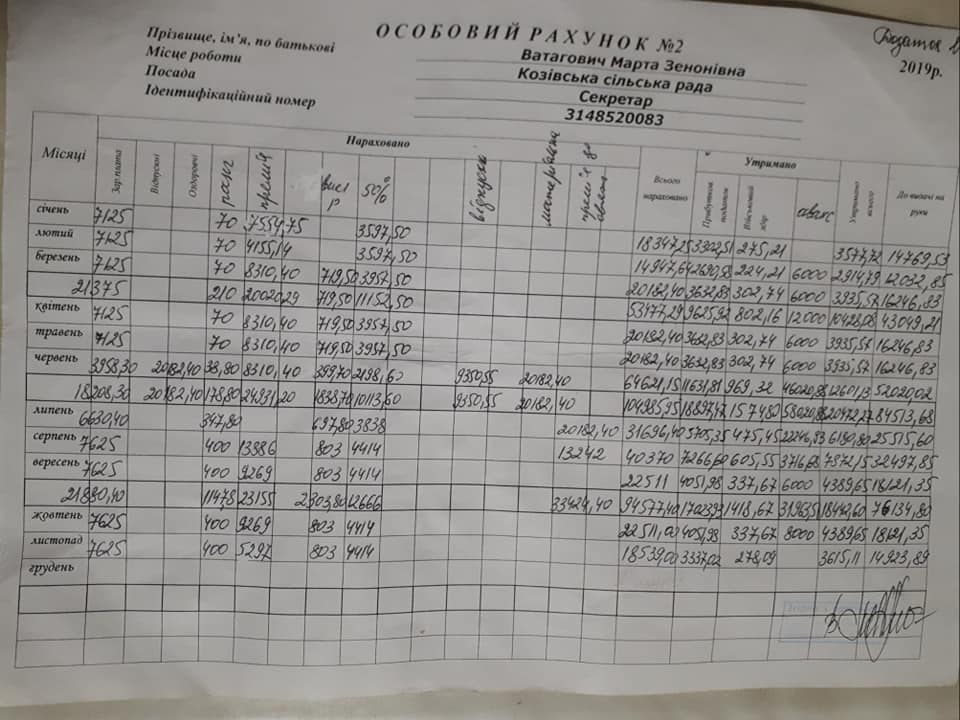 ОСОБОВИЙ РАХУНОК №2
Додаток
2019р.
Прізвище, ім'я, по батькові Ватагович Марта Зенонівна
Місце роботи Козівська сільська рада
Посада Секретар
Ідентифікаційний номер 3148520083
Місяці Нараховано Утримано
Зар плата Відпускні Оздоровчі ранг премія висл р 50% відпускні матеріальна премія до свят Всього нараховано Прибутков. податок Військовий збір аванс Утримано всього До видачі на руки
січень 7125 70 7554,75 3597,50 18347,25 3302,51 275,21 3577,72 14769,53
лютий 7125 70 4155,14 3597,50 14947,64 2690,58 224,21 6000 2914,79 12032,85
березень 7125 70 8310,40 719,50 3957,50 20182,40 3632,83 302,74 6000 3935,57 16246,83
21375 210 20020,29 719,50 11152,50 53477,29 9625,92 802,16 12000 10428,08 43049,21
квітень 7125 70 8310,40 719,50 3957,50 20182,40 3632,83 302,74 6000 3935,57 16246,83
травень 7125 70 8310,40 719,50 3957,50 20182,40 3632,83 302,74 6000 3935,57 16246,83
червень 3958,30 20182,40 38,80 8310,40 399,70 2198,60 9350,55 20182,40 64621,15 11631,81 969,32 46020,88 12601,13 52020,02
18208,30 20182,40 178,80 24931,20 1838,70 10113,60 9350,55 20182,40 104985,95 18897,47 1574,80 58020,88 20472,27 84513,68
липень 6630,40 347,80 697,80 3838 20182,40 31696,40 5705,35 475,45 22246,93 6180,80 25515,60
серпень 7625 400 13886 803 4414 13242 40370 7266,60 605,55 3716,68 7872,15 32497,85
вересень 7625 400 9269 803 4414 22511 4051,98 337,67 6000 4389,65 18121,35
21880,40 1147,8 23155 2303,80 12666 33424,40 94577,40 17023,93 1418,67 18442,60 76134,80
жовтень 7625 400 9269 803 4414 22511,00 4051,98 337,67 8000 4389,65 18121,35
листопад 7625 400 5297 803 4414 18539,00 3337,02 278,09 3615,11 14923,89
грудень